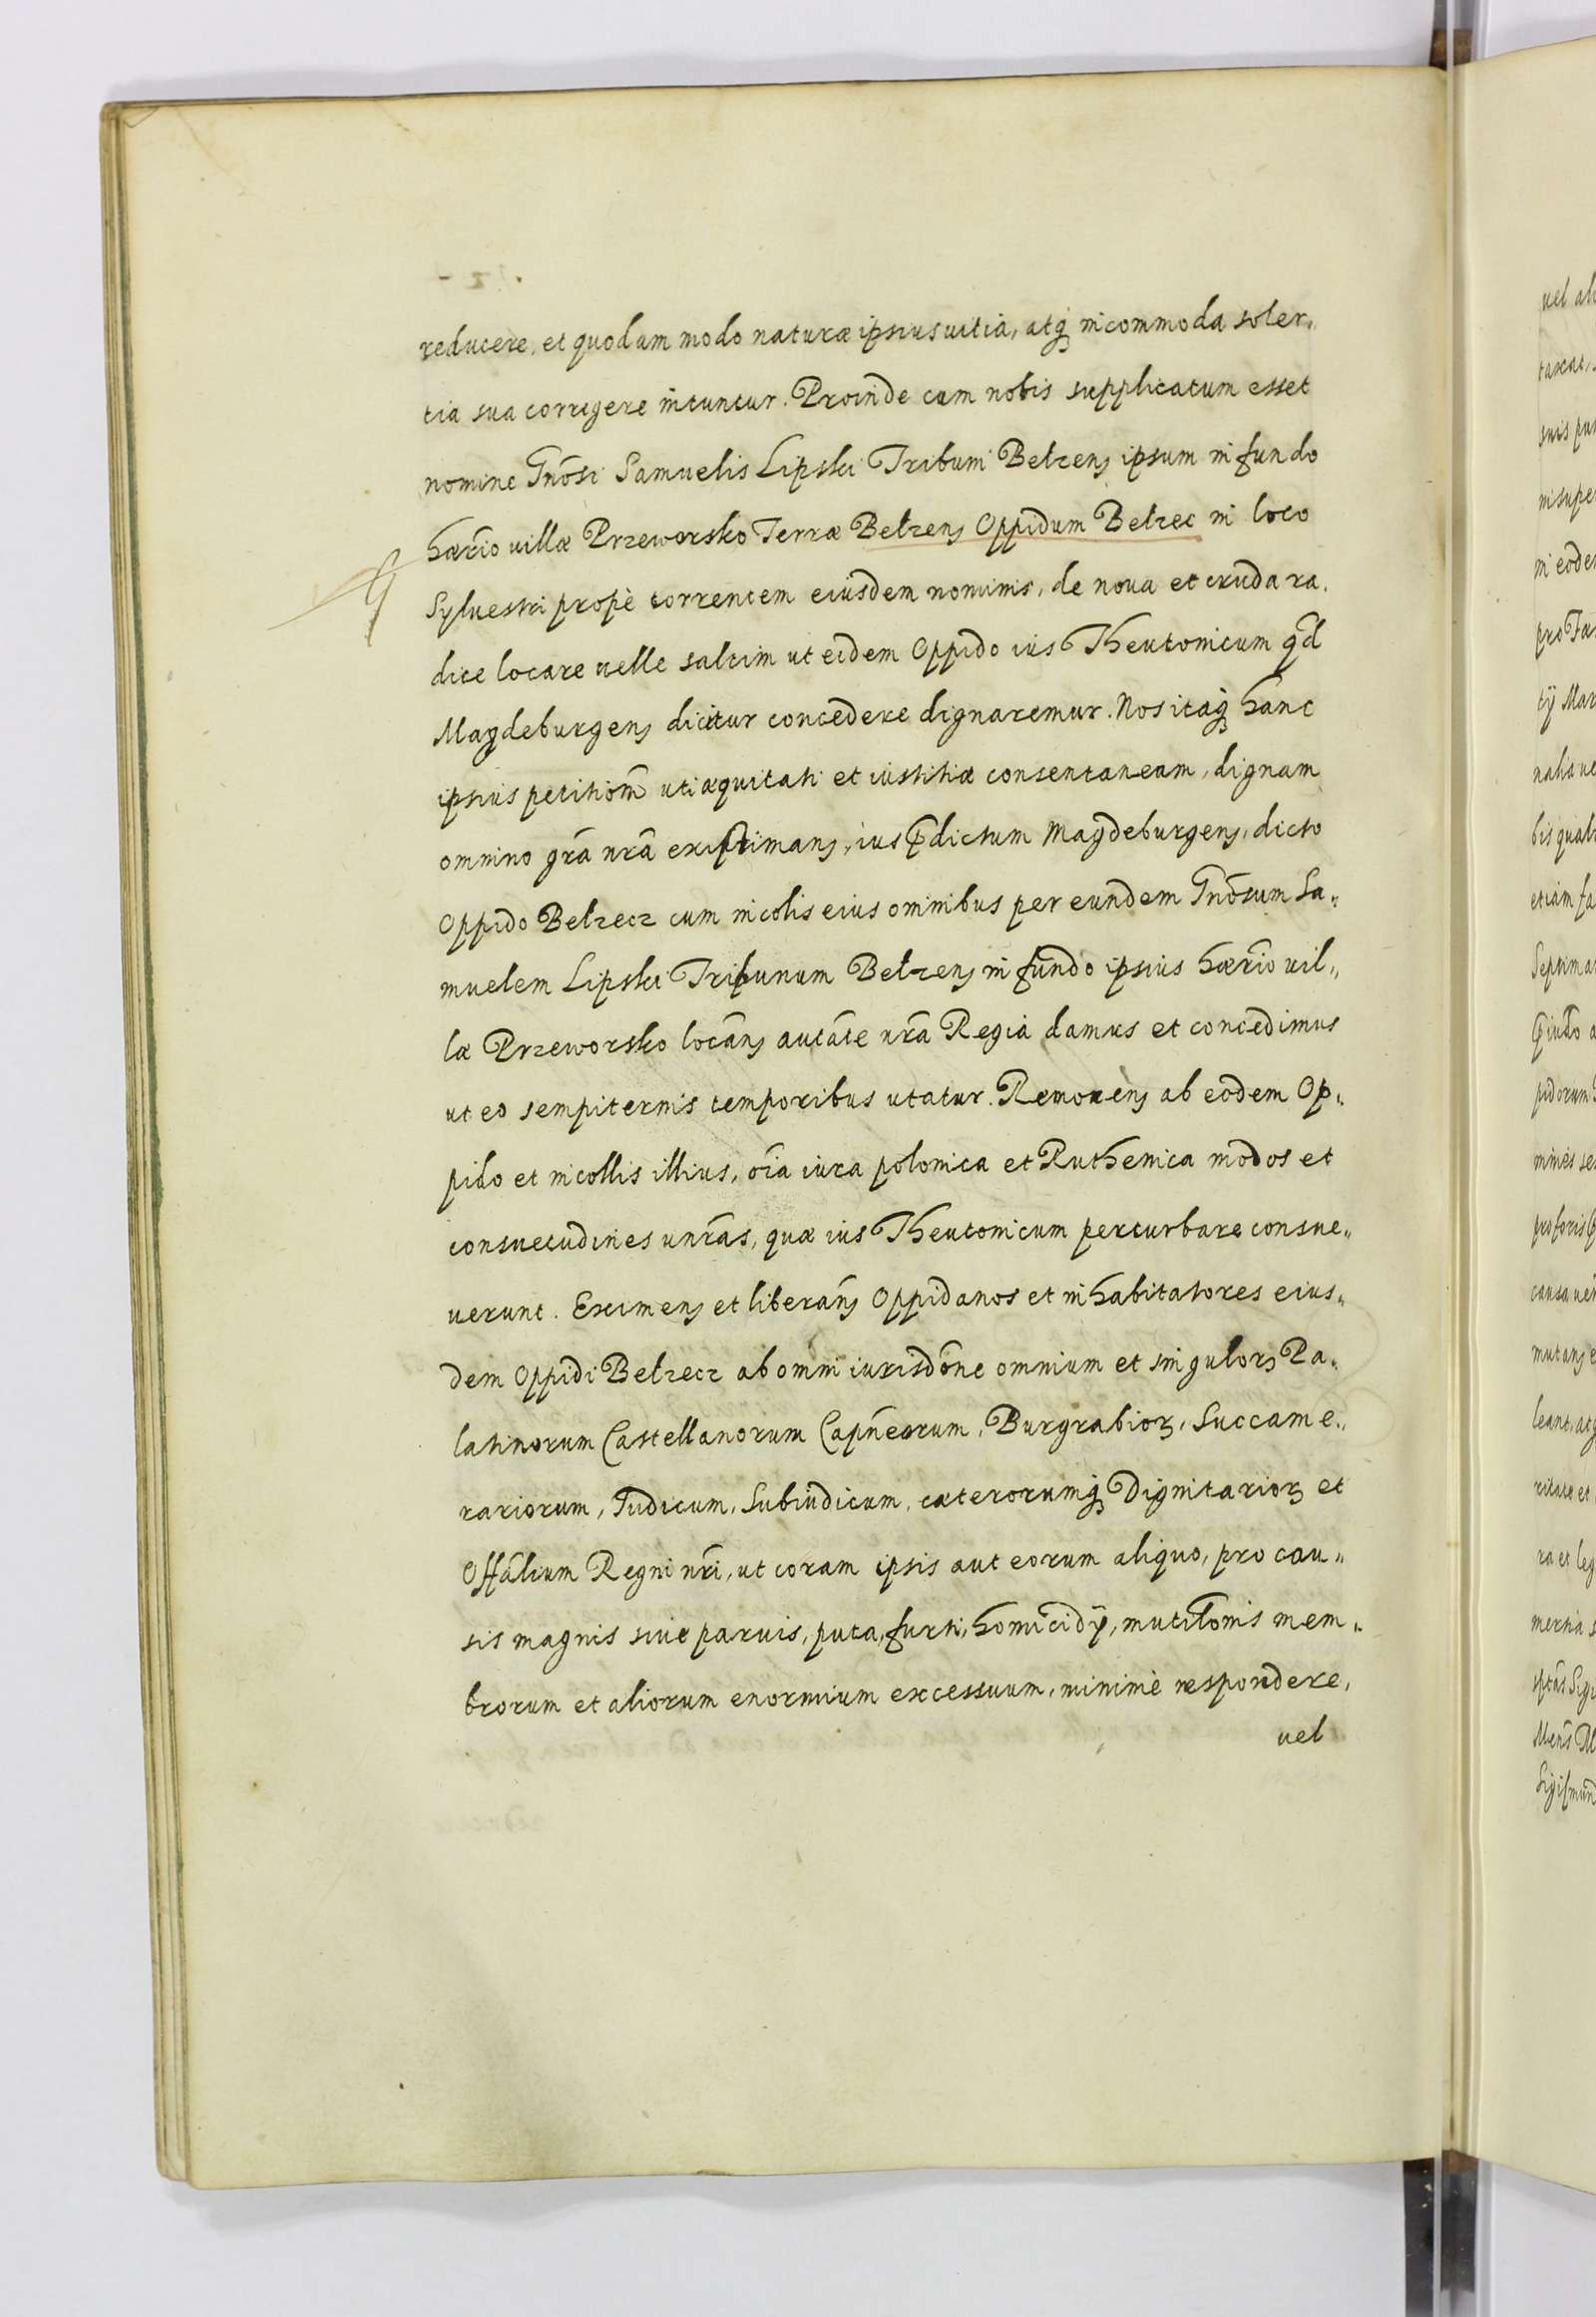 reducere, et quodam modo naturæ ipsius uitia, atq̨ incommoda soler„
tia sua corrigere nituntur. Proinde cum nobis supplicatum esset
nomine Gnõsi Samuelis Lipski Tribuni Belzens ipsum in fundo
hærio uillæ Przeworsko Terræ Belzens Oppidum Belzec in loco
Syluestri propè torrentem eiusdem nominis, de noua et cruda ra„
dice locare uelle saltim ut eidem Oppido ius Theutonicum qd
Magdeburgens dicitur concedere dignaremur. Nos itaq̨ hanc
ipsius petitiom̃ uti æquitati et iustitiæ consentaneam, dignam
omnino grã nrã existimans, ius p̃dictum Magdeburgens, dicto
Oppido Belzecz cum incolis eius omnibus per eundem Gnõsum Sa„
muelem Lipski Tribunum Belzens in fundo ipsius hærio uil„
læ Przeworsko locañs autãte nrã Regia damus et concedimus
ut eo sempiternis temporibus utatur. Remouens ab eodem Op„
pido et incollis illius, oĩa iura polonica et Ruthenica modos et
consuetudines unr̃as, quæ ius Theutonicum perturbare consue„
uerunt. Eximens et liberañs Oppidanos et inhabitatores eius„
dem Oppidi Belzecz ab omni iurisdõne omnium et singulorꝝ Pa„
latinorum Castellanorum Capñeorum, Burgrabiorꝝ, Succame„
rariorum, Iudicum, Subiudicum, cæterorumq̨ Dignitariorꝝ et
Offãlium Regni nr̃i, ut coram ipsis aut eorum aliquo, pro cau„
sis magnis siue paruis, puta, furti, homicidÿ, mutilõnis mem„
brorum et aliorum enormium excessuum, minimè respondere,
uel